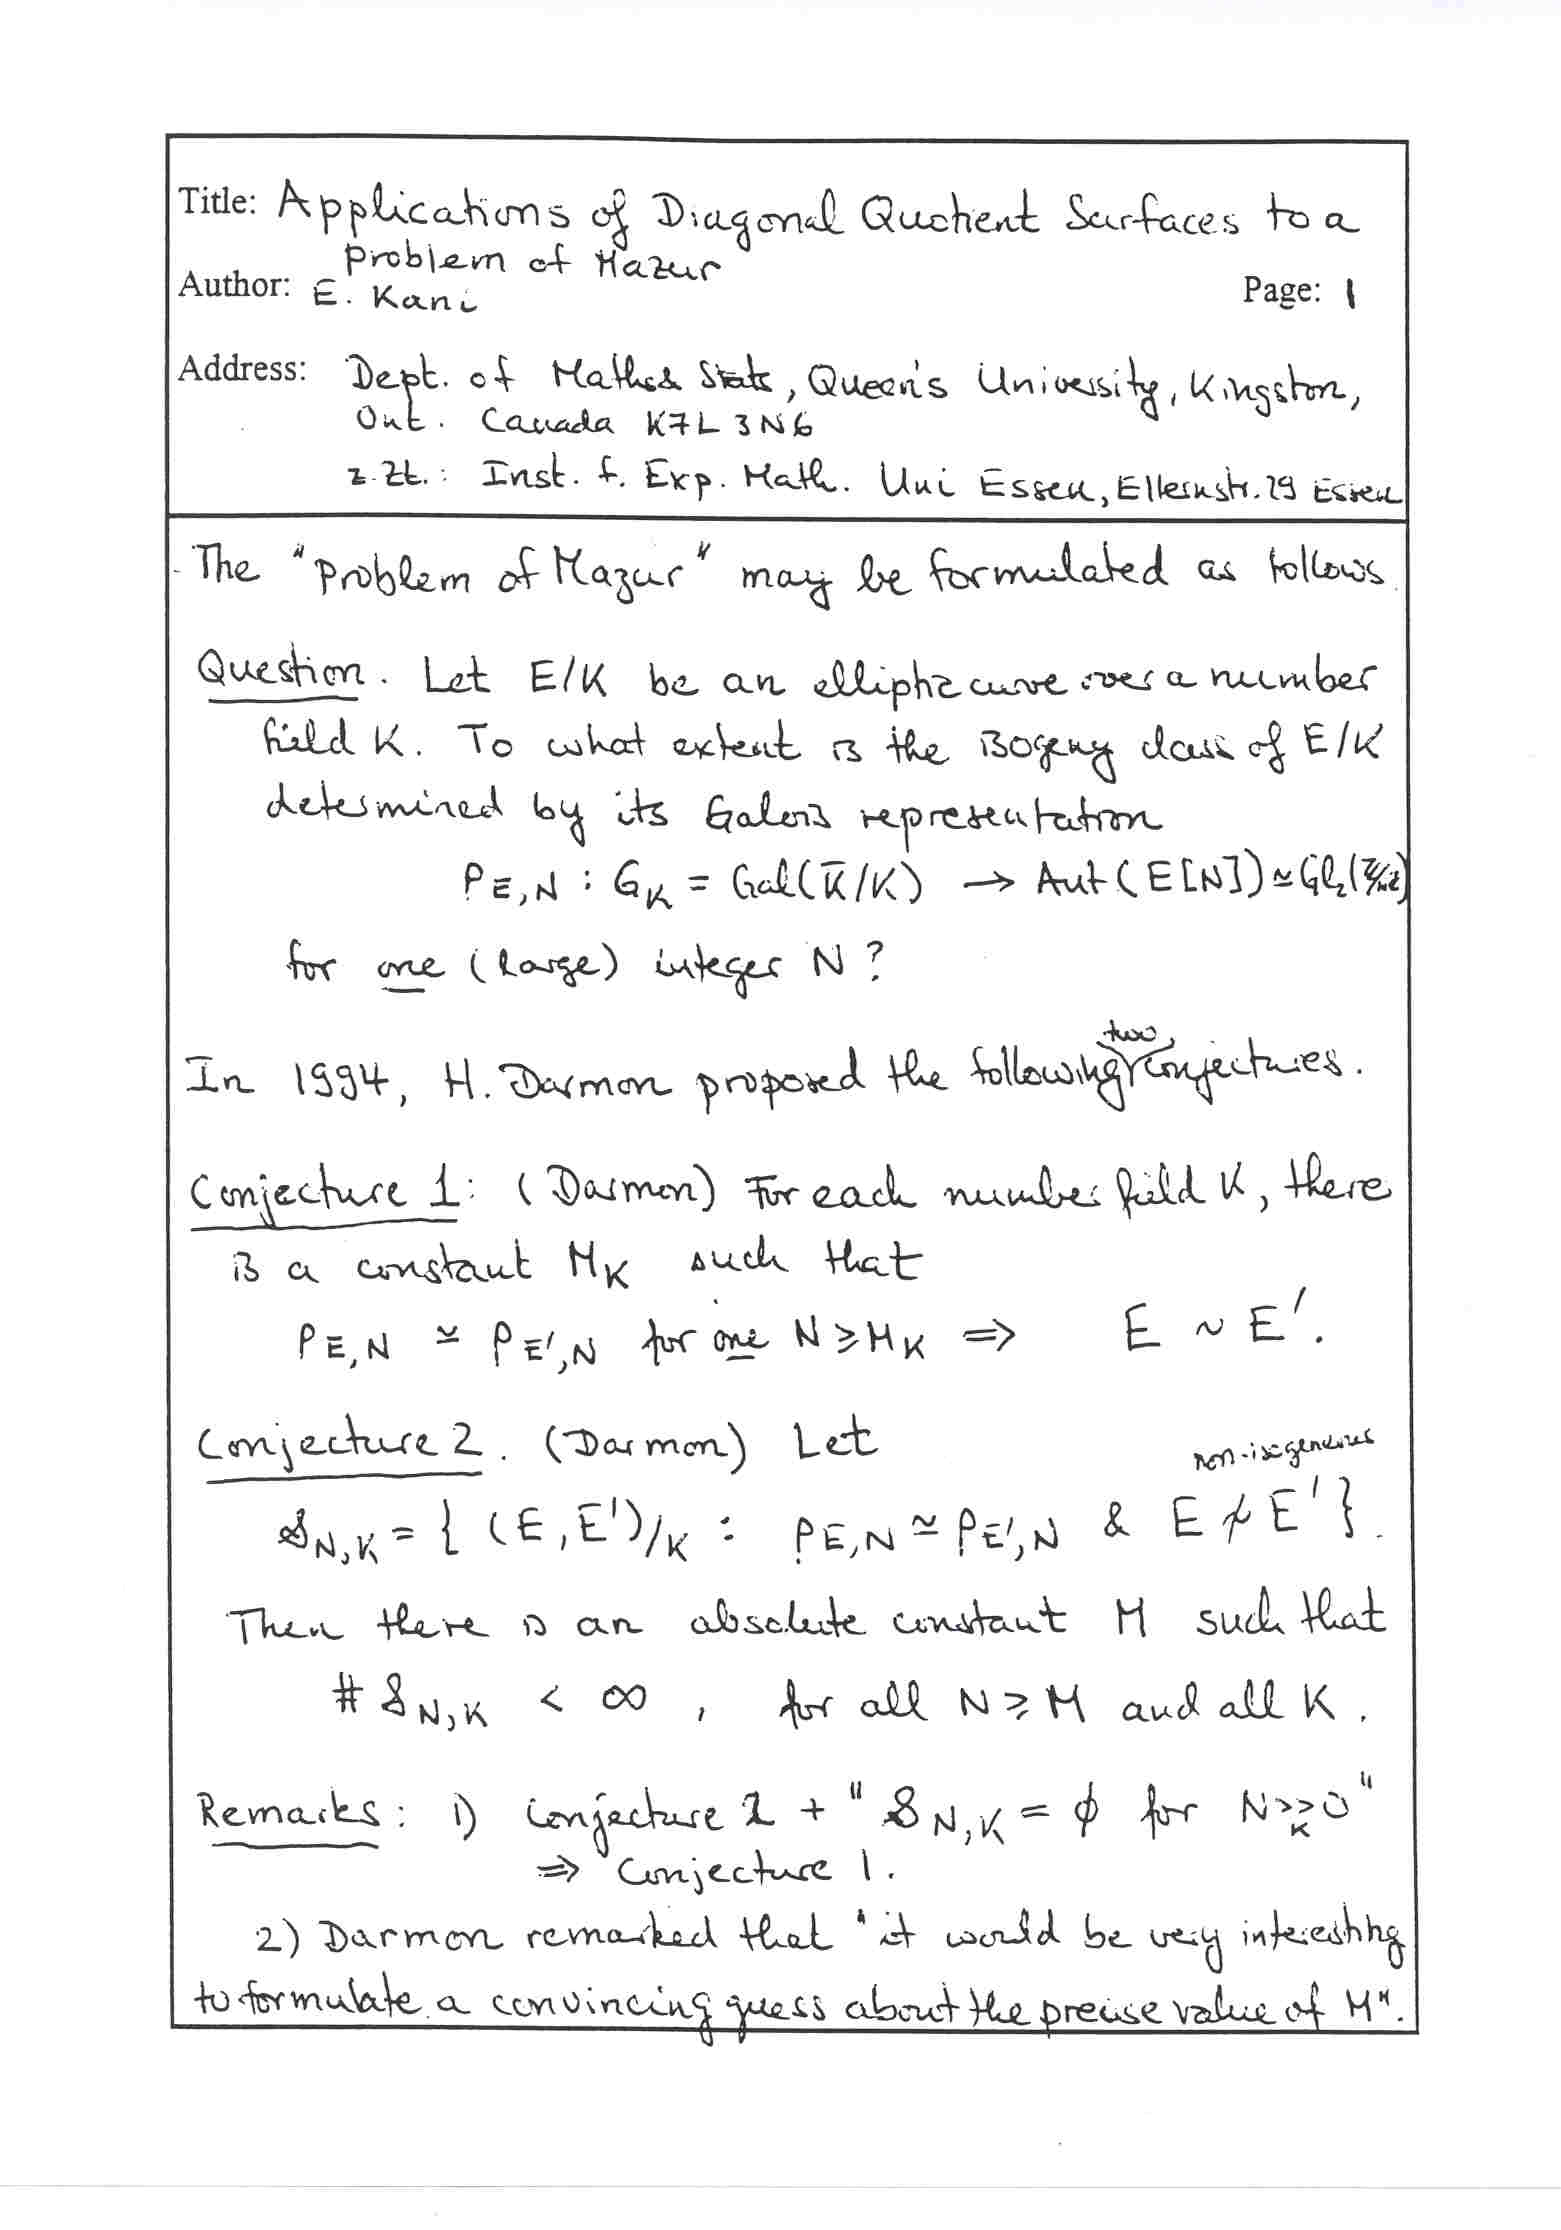 Title: Applications of Diagonal Quotient Surfaces to a
Problem of Mazur
Author: E. Kani
Page: 1
Address: Dept. of Math & Stats, Queen's University, Kingston,
Ont. Canada K7L 3N6
z.Zt.: Inst. f. Exp. Math. Uni Essen, Ellernstr. 29 Essen
The "problem of Mazur" may be formulated as follows.
Question. Let E/K be an elliptic curve over a number
field K. To what extent is the isogeny class of E/K
determined by its Galois representation
ρ_{E,N} : G_K = Gal(K̄/K) → Aut(E[N]) ≃ Gl₂(ℤ/Nℤ)
for one (large) integer N?
In 1994, H. Darmon proposed the following two conjectures.
Conjecture 1: (Darmon) For each number field K, there
is a constant M_K such that
ρ_{E,N} ≃ ρ_{E',N} for one N ≥ M_K ⇒ E ∼ E'.
Conjecture 2. (Darmon) Let
non-isogeneous
𝒮_{N,K} = { (E,E')/K : ρ_{E,N} ≃ ρ_{E',N} & E ≁ E' }.
Then there is an absolute constant M such that
# 𝒮_{N,K} < ∞, for all N ≥ M and all K.
Remarks: 1) Conjecture 2 + "𝒮_{N,K} = ∅ for N >>_K 0"
⇒ Conjecture 1.
2) Darmon remarked that "it would be very interesting
to formulate a convincing guess about the precise value of M".